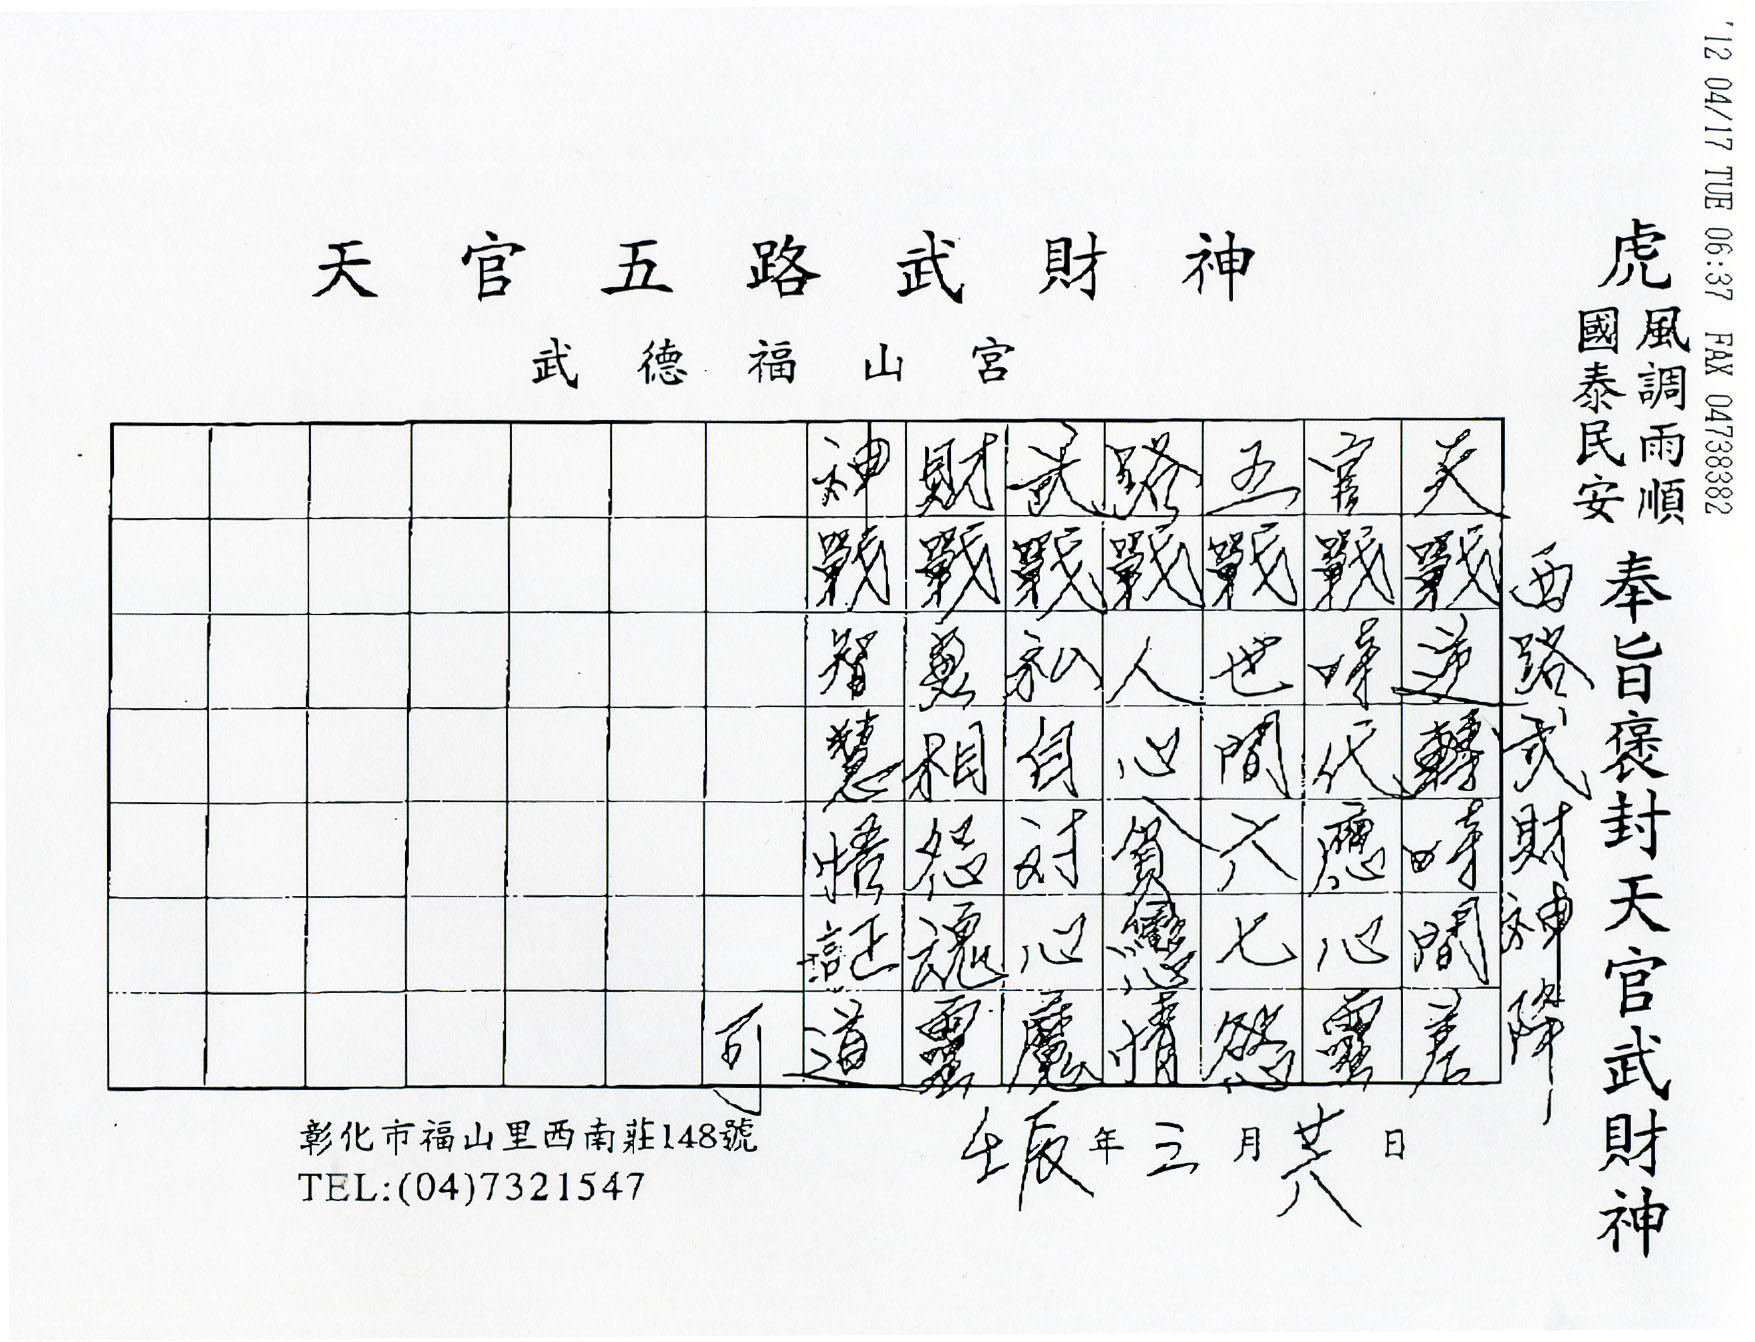 '12 04/17 TUE 06:37 FAX 04738382
天官五路武財神
武德福山宮
虎
風調雨順
國泰民安
奉旨褒封天官武財神
西路武財神降
天戰逆轉時間差
官戰時代應心靈
五戰世間六七慾
路戰人心貪戀情
武戰私自对心魔
財戰相怨魂靈
神戰智慧悟証道
可
壬辰年三月廿六日
彰化市福山里西南莊148號
TEL:(04)7321547